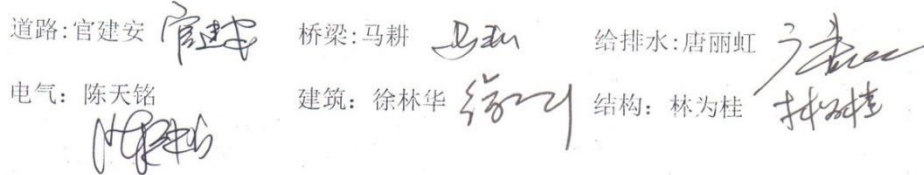 道路:官建安 官建安 桥梁:马耕 马耕 给排水:唐丽虹
电气：陈天铭 建筑：徐林华 结构：林为桂 林为桂